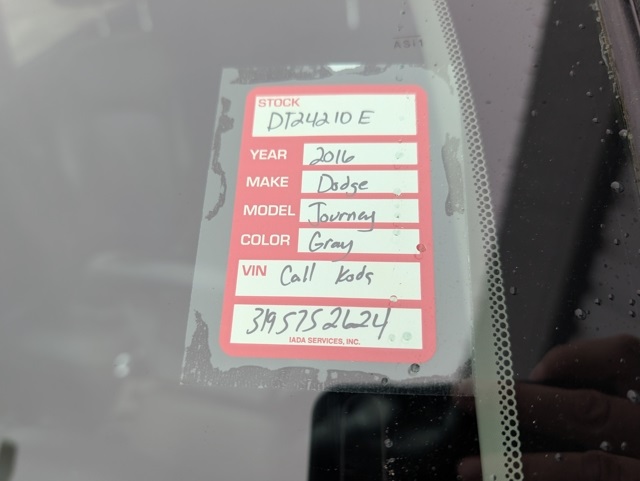 STOCK
DT24210E
YEAR 2016
MAKE Dodge
MODEL Journey
COLOR Gray
VIN Call Kody
3195752624
IADA SERVICES, INC.